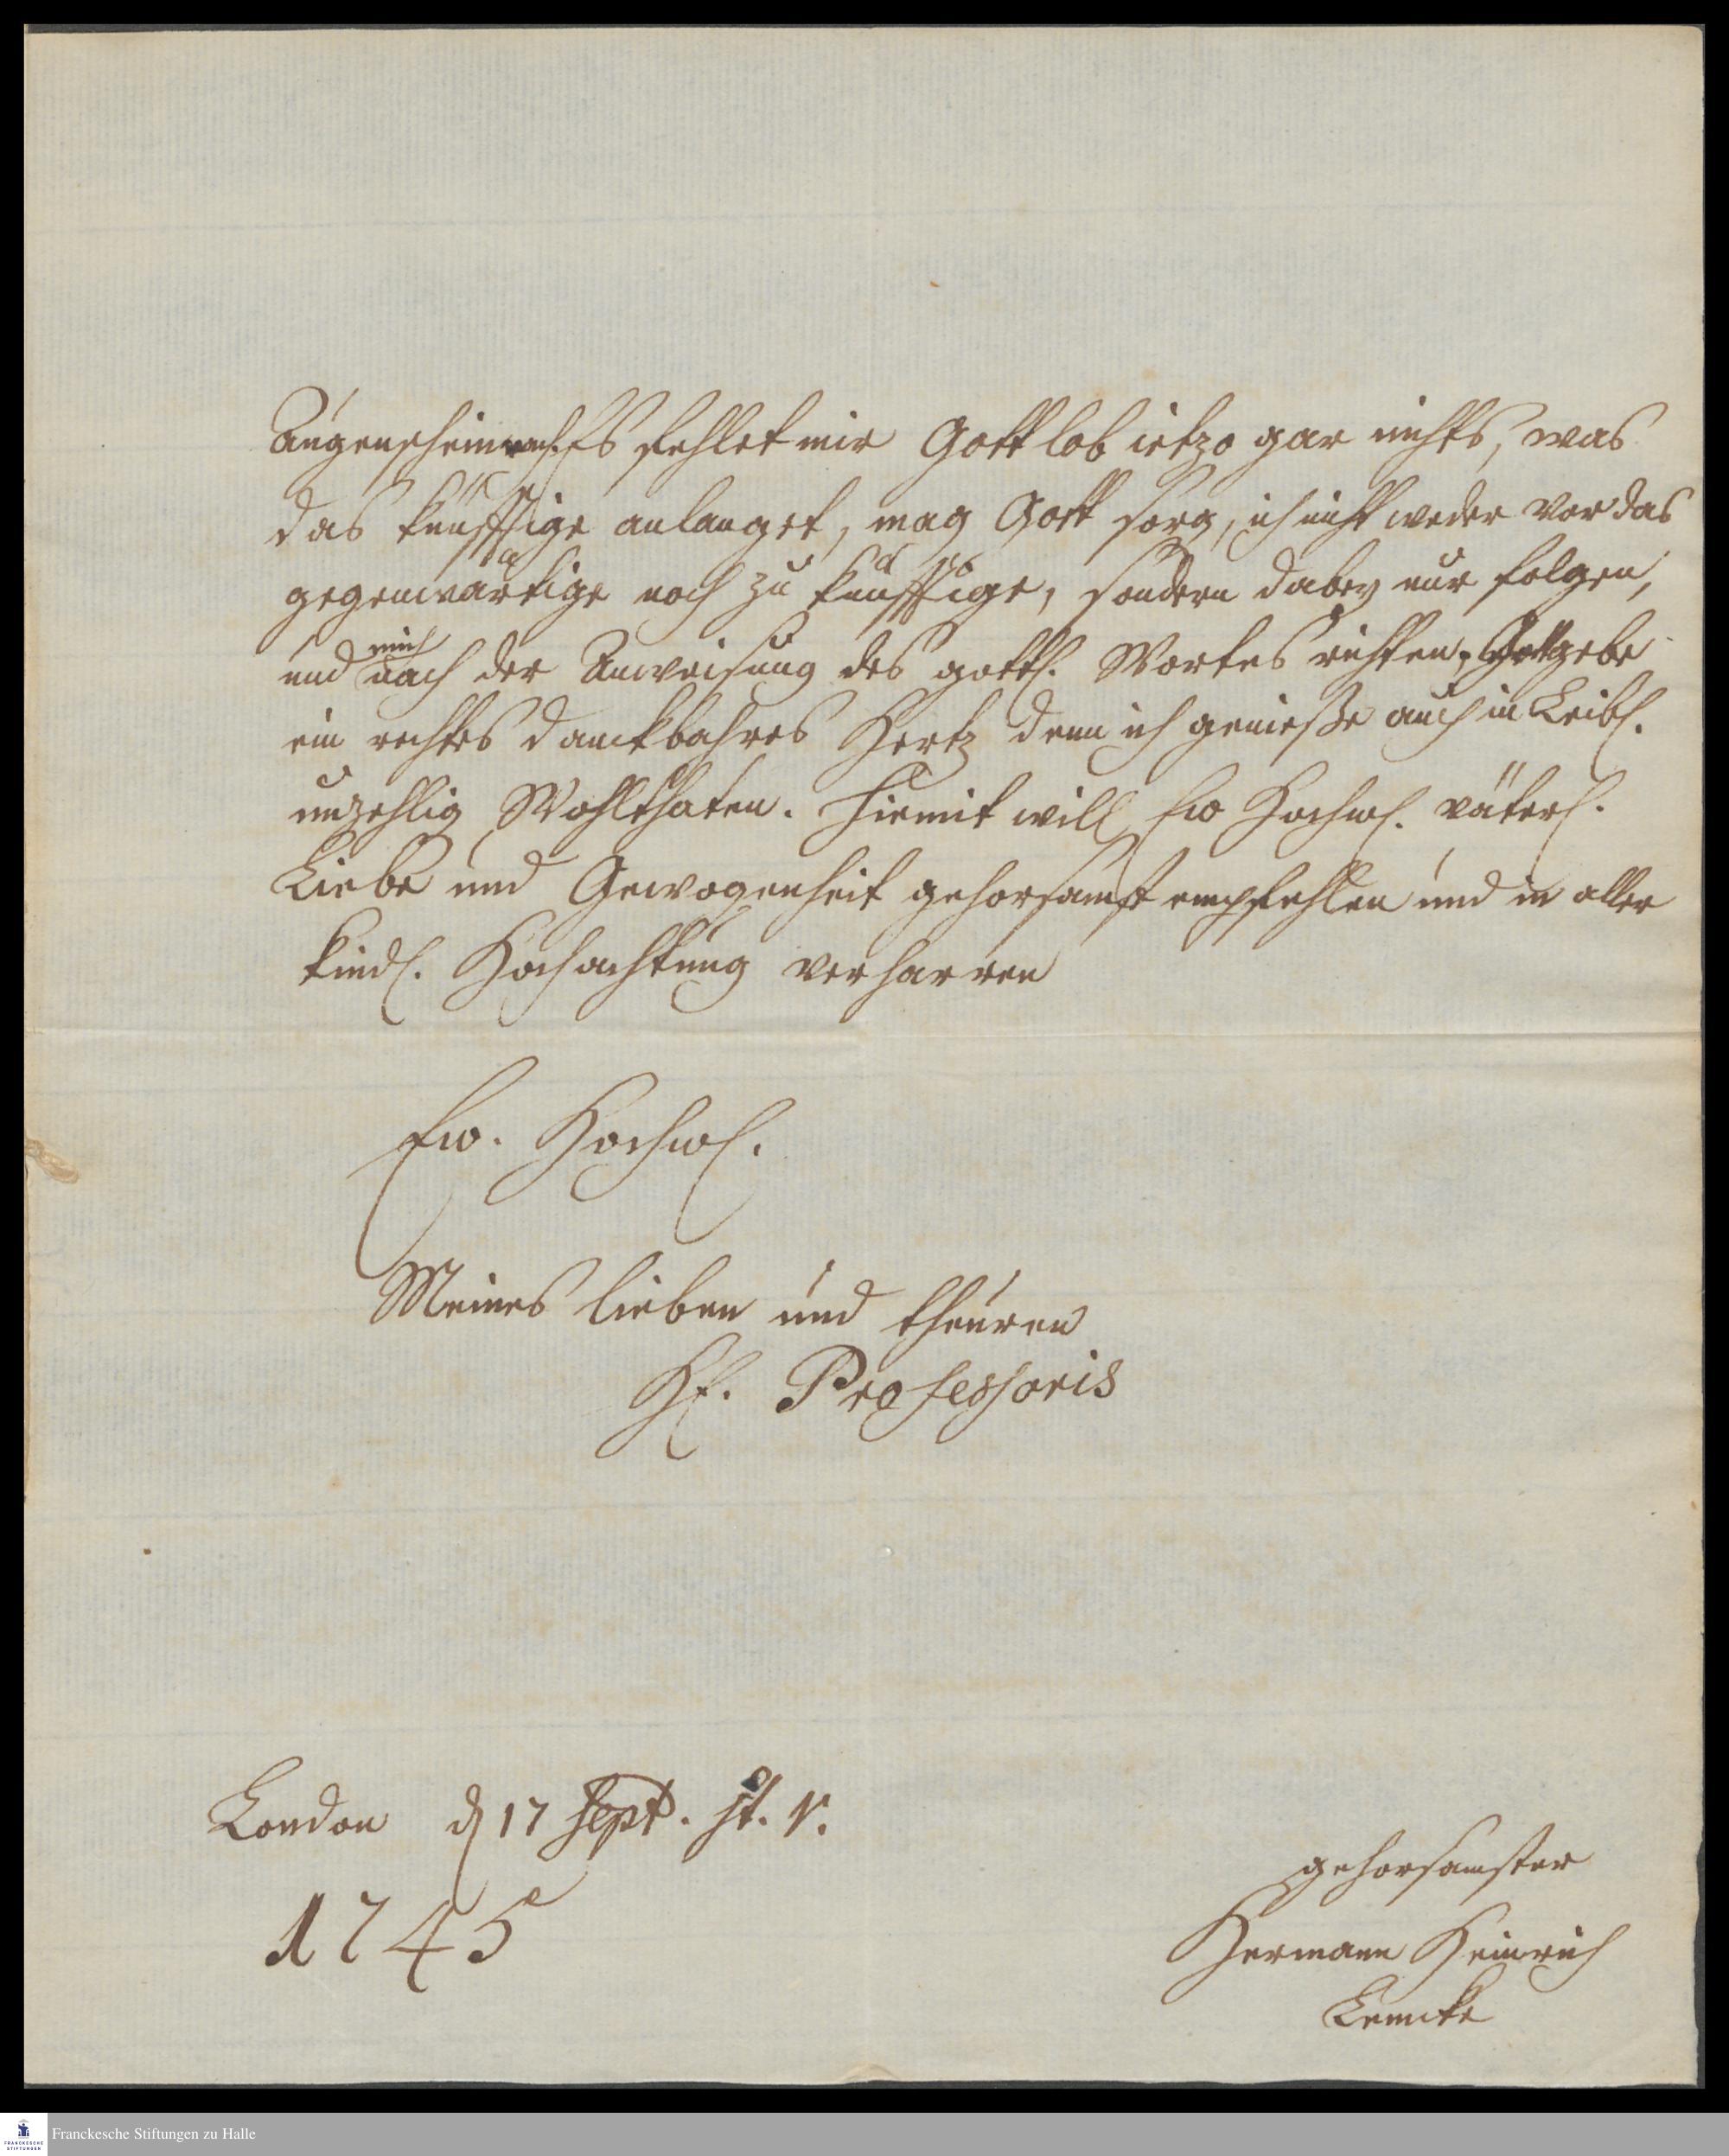 Augenschein nach. Es fehlet mir Gott lob ietzo gar nichts, was
das künfftige anlanget, mag Gott sorg, ich nicht weder vor das
gegenwärtige noch zu künfftige, sondern dabey nur folgen,
und mich nach der Anweisung des göttl. Wortes richten, Gott gebe
ein rechtes danckbahres Hertz denn ich genieße auch in Leibl.
unzehlig Wohlthaten. Hiemit will Ew Hochw. väterl.
Liebe und Gewogenheit gehorsamst empfehlen und in aller
kindl. Hochachtung verharren
Ew. Hochw.
Meines lieben und theuren
H. Professoris
London d 17 Sept. st. v.
1745
gehorsamster
Hermann Heinrich
Lemcke
Franckesche Stiftungen zu Halle
FRANCKESCHE
STIFTUNGEN